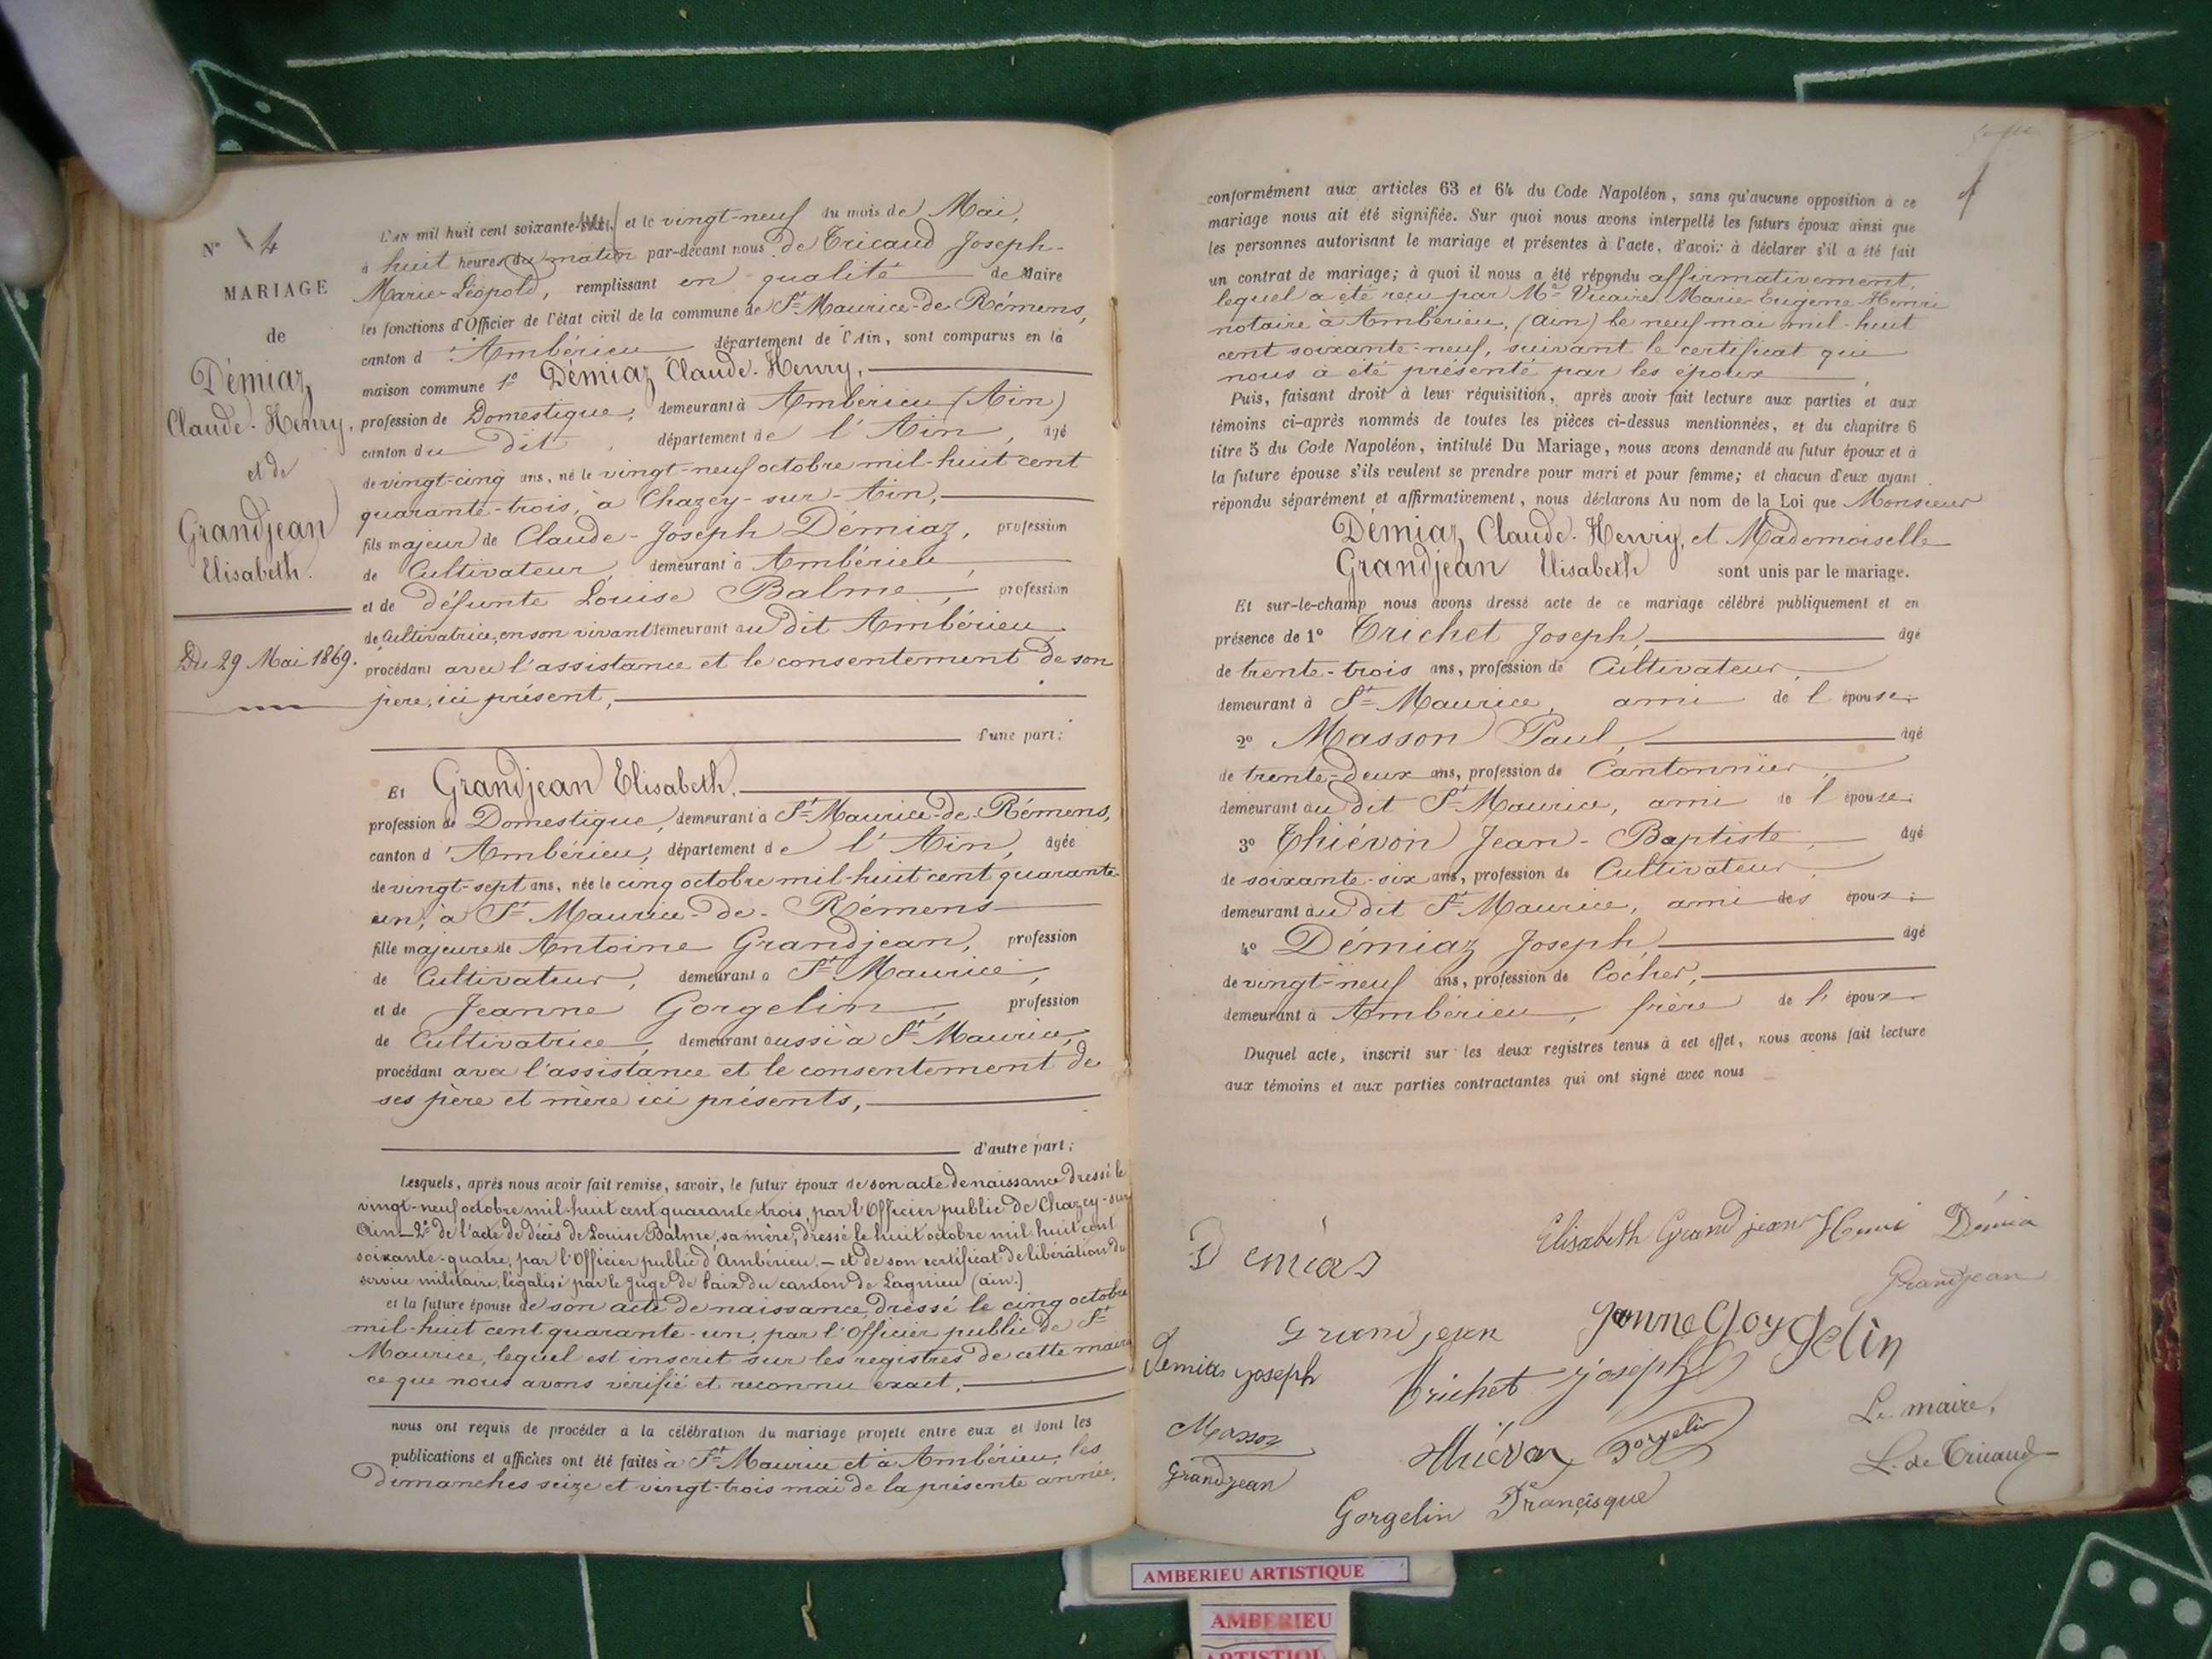 N° 4
MARIAGE
de
Démiaz
Claude-Henry,
et de
Grandjean
Elisabeth.
Du 29 Mai 1869.
L'AN mil huit cent soixante- et le vingt-neuf du mois de Mai,
à huit heures du matin par-devant nous de Tricaud Joseph-
Marie-Léopold, remplissant en qualité de Maire
les fonctions d'Officier de l'état civil de la commune de St. Maurice-de-Rémens,
canton d'Ambérieu département de l'Ain, sont comparus en la
maison commune 1° Démiaz Claude-Henry,
profession de Domestique, demeurant à Ambérieu (Ain)
canton du dit, département de l'Ain, âgé
de vingt-cinq ans, né le vingt-neuf octobre mil-huit cent
quarante-trois, à Chazey-sur-Ain,
fils majeur de Claude-Joseph Démiaz, profession
de Cultivateur, demeurant à Ambérieu,
et de défunte Louise Balme, profession
de Cultivatrice, en son vivant demeurant au dit Ambérieu
procédant avec l'assistance et le consentement de son
père, ici présent,
d'une part;
Et Grandjean Elisabeth,
profession de Domestique, demeurant à St. Maurice-de-Rémens,
canton d'Ambérieu, département de l'Ain, âgée
de vingt-sept ans, née le cinq octobre mil-huit cent quarante-
un, à St. Maurice-de-Rémens
fille majeure de Antoine Grandjean, profession
de Cultivateur, demeurant à St. Maurice,
et de Jeanne Gorgelin, profession
de Cultivatrice, demeurant aussi à St. Maurice,
procédant avec l'assistance et le consentement de
ses père et mère ici présents,
d'autre part;
Lesquels, après nous avoir fait remise, savoir, le futur époux de son acte de naissance dressé le
vingt-neuf octobre mil-huit cent quarante-trois, par l'Officier public de Chazey-sur
Ain_2° de l'acte de décès de Louise Balme, sa mère, dressé le huit octobre mil-huit cent
soixante-quatre, par l'Officier public d'Ambérieu.- et de son certificat de libération du
service militaire, légalisé par le Juge de Paix du canton de Lagnieu (ain.)
et la future épouse de son acte de naissance, dressé le cinq octobre
mil-huit cent quarante-un, par l'Officier public de St.
Maurice, lequel est inscrit sur les registres de cette mairie
ce que nous avons vérifié et reconnu exact,
nous ont requis de procéder à la célébration du mariage projeté entre eux et dont les
publications et affiches ont été faites à St. Maurice et à Ambérieu, les
dimanches seize et vingt-trois mai de la présente année,
conformément aux articles 63 et 64 du Code Napoléon, sans qu'aucune opposition à ce
mariage nous ait été signifiée. Sur quoi nous avons interpellé les futurs époux ainsi que
les personnes autorisant le mariage et présentes à l'acte, d'avoir à déclarer s'il a été fait
un contrat de mariage; à quoi il nous a été répondu affirmativement,
lequel a été reçu par Me. Vicaire Marie-Eugène-Henri
notaire à Ambérieu, (Ain) le neuf mai mil-huit
cent soixante-neuf, suivant le certificat qui
nous a été présenté par les époux,
Puis, faisant droit à leur réquisition, après avoir fait lecture aux parties et aux
témoins ci-après nommés de toutes les pièces ci-dessus mentionnées, et du chapitre 6
titre 5 du Code Napoléon, intitulé Du Mariage, nous avons demandé au futur époux et à
la future épouse s'ils veulent se prendre pour mari et pour femme; et chacun d'eux ayant
répondu séparément et affirmativement, nous déclarons Au nom de la Loi que Monsieur
Démiaz Claude-Henry, et Mademoiselle
Grandjean Elisabeth sont unis par le mariage.
Et sur-le-champ nous avons dressé acte de ce mariage célébré publiquement et en
présence de 1° Trichet Joseph, âgé
de trente-trois ans, profession de Cultivateur,
demeurant à St. Maurice, ami de l'épouse;
2° Masson Paul, âgé
de trente-deux ans, profession de Cantonnier,
demeurant au dit St. Maurice, ami de l'épouse;
3° Thiévon Jean-Baptiste, âgé
de soixante-six ans, profession de Cultivateur,
demeurant au dit St. Maurice, ami des époux;
4° Démiaz Joseph, âgé
de vingt-neuf ans, profession de Cocher,
demeurant à Ambérieu, frère de l'époux
Duquel acte, inscrit sur les deux registres tenus à cet effet, nous avons fait lecture
aux témoins et aux parties contractantes qui ont signé avec nous
Elisabeth Grandjean Henri Démia
Demias
Grandjean
Grandjean
Janne Goygelin
Demias joseph
trichet joseph
Masson
Thiévon
Gorgelin
Le maire,
L. de Tricaud
Grandjean
Gorgelin Françisque
AMBERIEU ARTISTIQUE
AMBERIEU